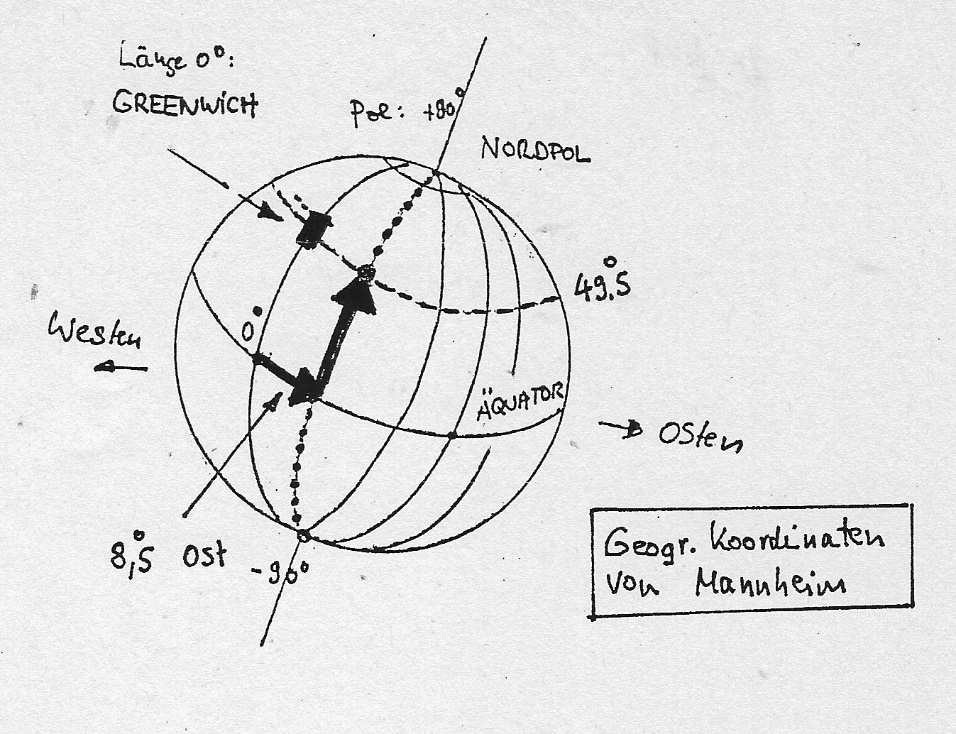 Länge 0°:
GREENWICH
Pol: +90°
NORDPOL
49°,5
Westen
0°
ÄQUATOR
Osten
8°,5 Ost
-90°
Geogr. Koordinaten
von Mannheim